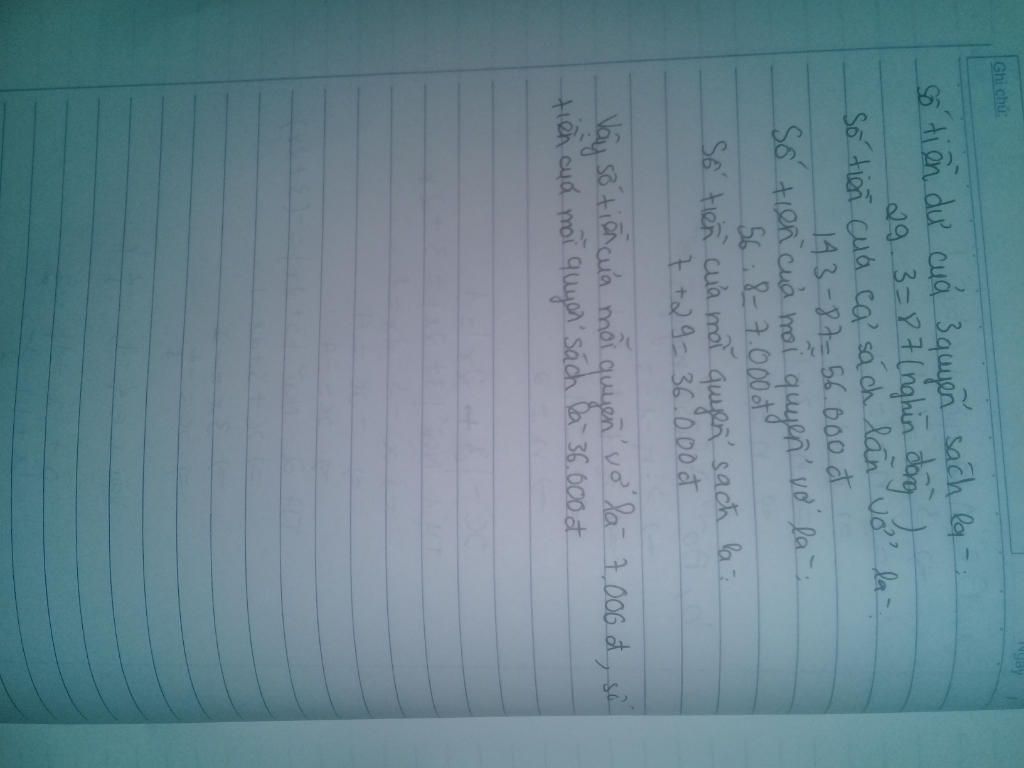 Ghi chú:
Ngày
Số tiền dư của 3 quyển sách là:
29 . 3 = 87 (nghìn đồng)
Số tiền của cả sách lẫn vở là:
143 - 87 = 56.000đ
Số tiền của mỗi quyển vở là:
56 : 8 = 7.000đ
Số tiền của mỗi quyển sách là:
7 + 29 = 36.000đ
Vậy số tiền của mỗi quyển vở là 7.000đ, số
tiền của mỗi quyển sách là 36.000đ